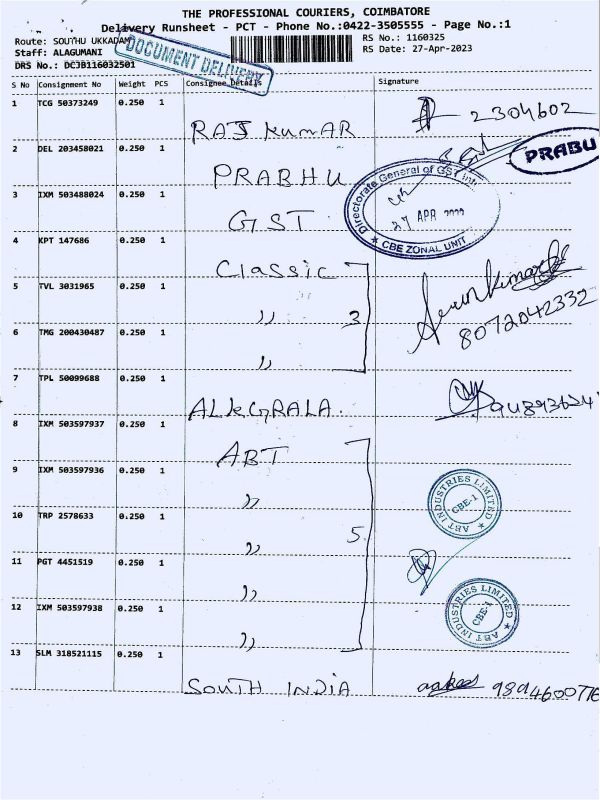 THE PROFESSIONAL COURIERS, COIMBATORE
Delivery Runsheet - PCT - Phone No.:0422-3505555 - Page No.:1
Route: SOUTHU UKKADAM
RS No.: 1160325
Staff: ALAGUMANI
RS Date: 27-Apr-2023
DRS No.: DCJB116032501
DOCUMENT DELIVERY
S No Consignment No Weight PCS Consignee Details Signature
1 TCG 50373249 0.250 1
RAJ KUMAR 2304602
2 DEL 203458021 0.250 1
PRABHU PRABU
3 IXM 503488024 0.250 1
GST
Directorate General of GST
27 APR
CBE ZONAL UNIT
4 KPT 147686 0.250 1
Classic
5 TVL 3031965 0.250 1
,, 3 Arunkumar
8072042332
6 TMG 200430487 0.250 1
,,
7 TPL 50099688 0.250 1
ALKGRALA.
8 IXM 503597937 0.250 1
ABT
9 IXM 503597936 0.250 1
,,
ABT INDUSTRIES LIMITED
CBE-1
10 TRP 2578633 0.250 1
,, 5
11 PGT 4451519 0.250 1
,,
12 IXM 503597938 0.250 1
,,
ABT INDUSTRIES LIMITED
CBE-1
13 SLM 318521115 0.250 1
SOUTH INDIA